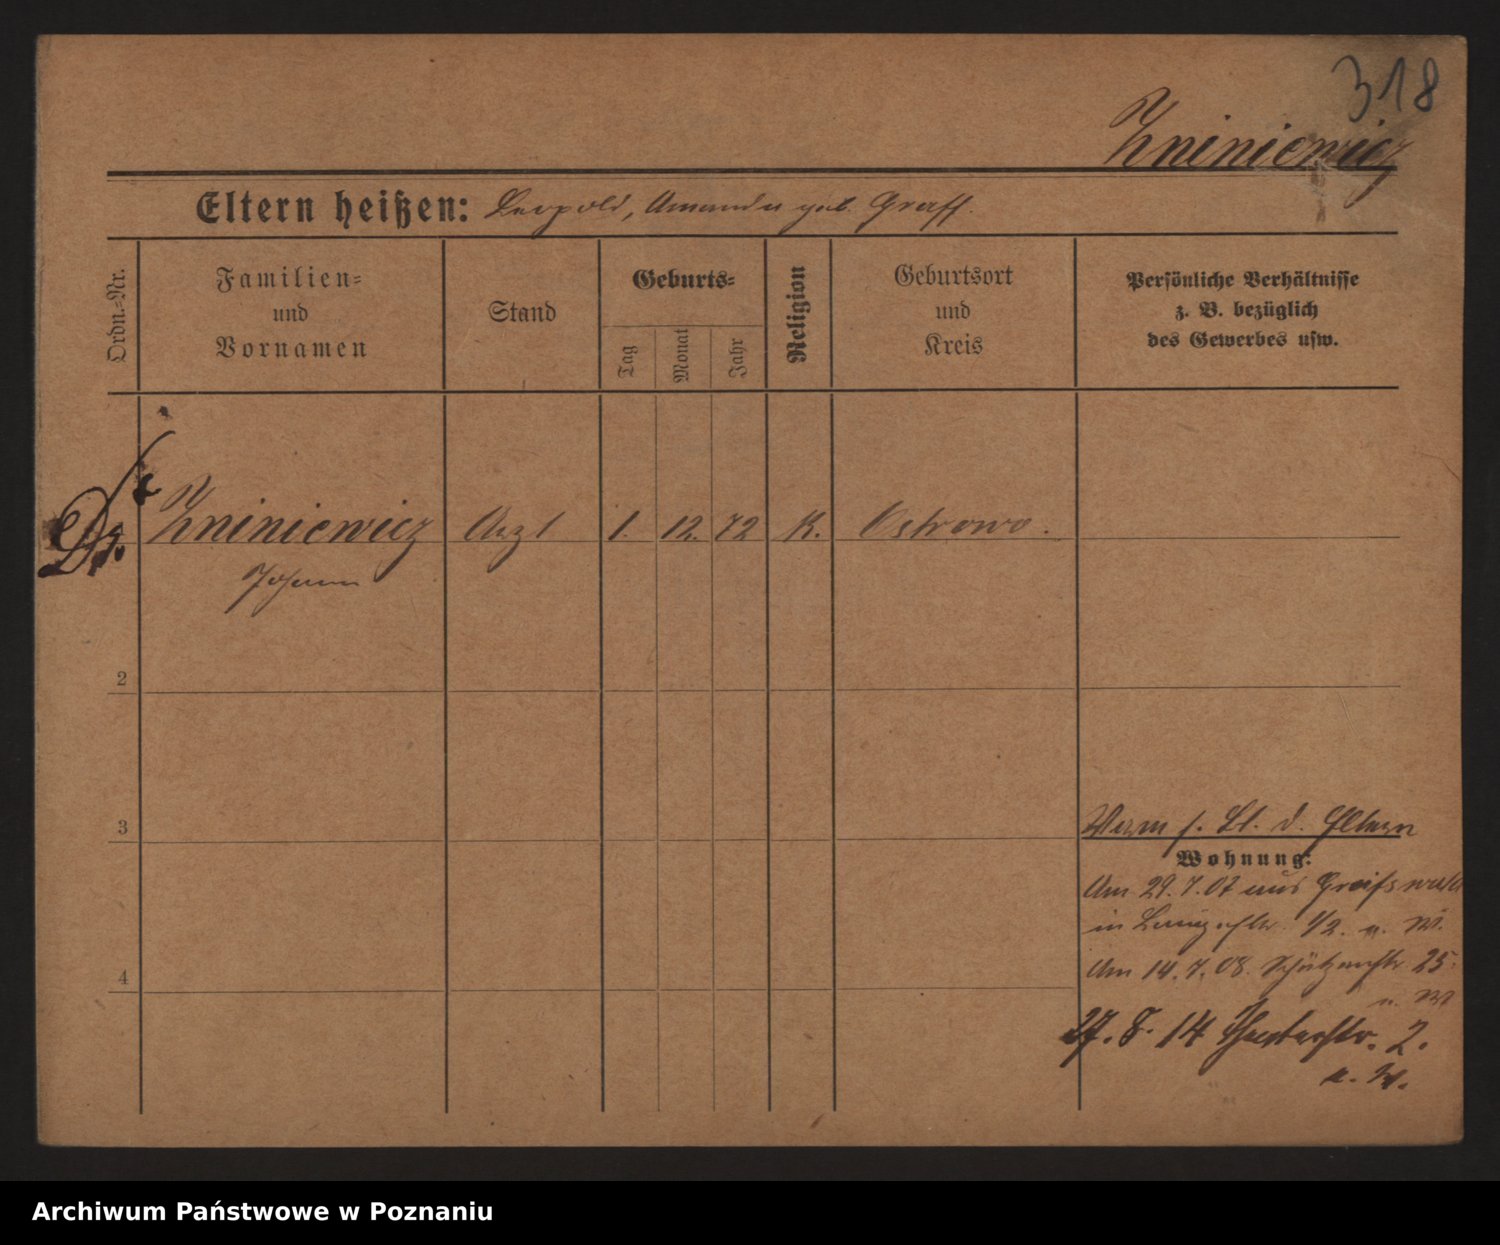 318
Zniniewicz
Eltern heißen: Leopold, Amanda geb. Graff.
Ordn.-Nr.
Familien-
und
Vornamen
Stand
Geburts-
Tag
Monat
Jahr
Religion
Geburtsort
und
Kreis
Persönliche Verhältnisse
z. B. bezüglich
des Gewerbes usw.
Dr. Zniniewicz Arzt 1. 12. 72 K. Ostrowo.
Johann
2
3
4
Verm s. Bl. d. Eltern
Wohnung:
Am 29.7.07 aus Greifswald
in 1/2. n. W.
Am 14.7.08. Schützenstr 25.
n. W
27. 8. 14 Theaterstr. 2.
n. W.
Archiwum Państwowe w Poznaniu